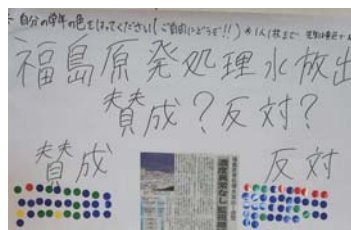 自分の学年の色をはってください(ご自由にどうぞ!!) 1人1枚まで
福島原発処理水放出
賛成?反対?
賛成
反対
濃度異常なし